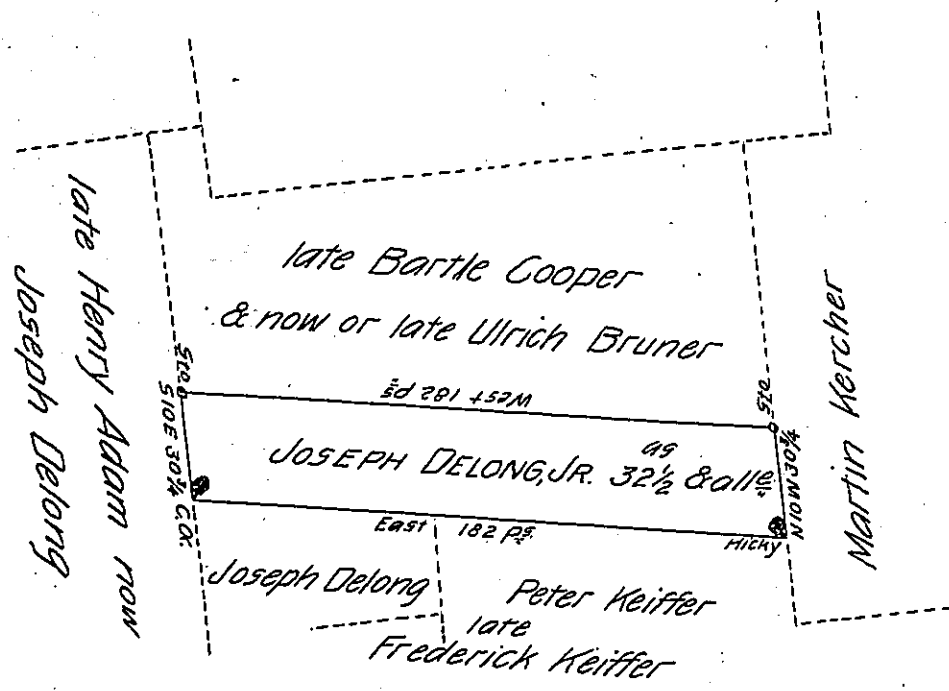 late Henry Adam now
Joseph Delong
late Bartle Cooper
& now or late Ulrich Bruner
Martin Kercher
Sto
West 182 ps
Sto
S10E 30¾
C.O.
JOSEPH DELONG, JR. 32½ as & alle
N10W 30¾
East 182 Ps.
Hicky
Joseph Delong
Peter Keiffer
late
Frederick Keiffer